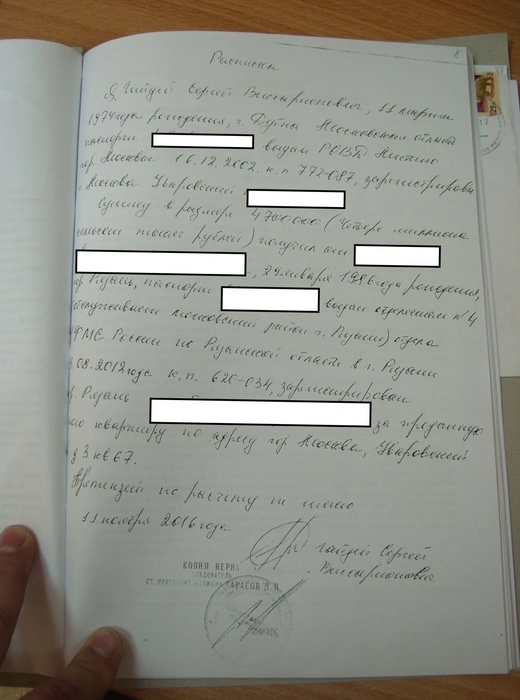 2
Расписка.
Я, Гайдей Сергей Виссарионович, 11 апреля
1974 года рождения, г. Дубна Московская область
паспорт выдан РОВД Митино
гор. Москва 16.12.2002. к.п 772-087, зарегистрирован
г. Москва Уваровский
Сумму в размере 4 700 000 (Четыре миллиона
семьсот тысяч рублей) получил от
, 29 января 1986 года рождения,
гор Рязань, паспорт выдан отделением №4
московский район г. Рязани) отдела
УФМС России по Рязанской области в г. Рязани
.08.2012 года к.п. 620-034, зарегистрирован
Рязань за проданную
квартиру по адресу гор Москва, Уваровский
д 3 кв 67.
Претензий по расчету не имею
11 ноября 2016 года
Гайдей Сергей
Виссарионович
КОПИЯ ВЕРНА
СЛЕДОВАТЕЛЬ
ТАРАСОВ Д.В.